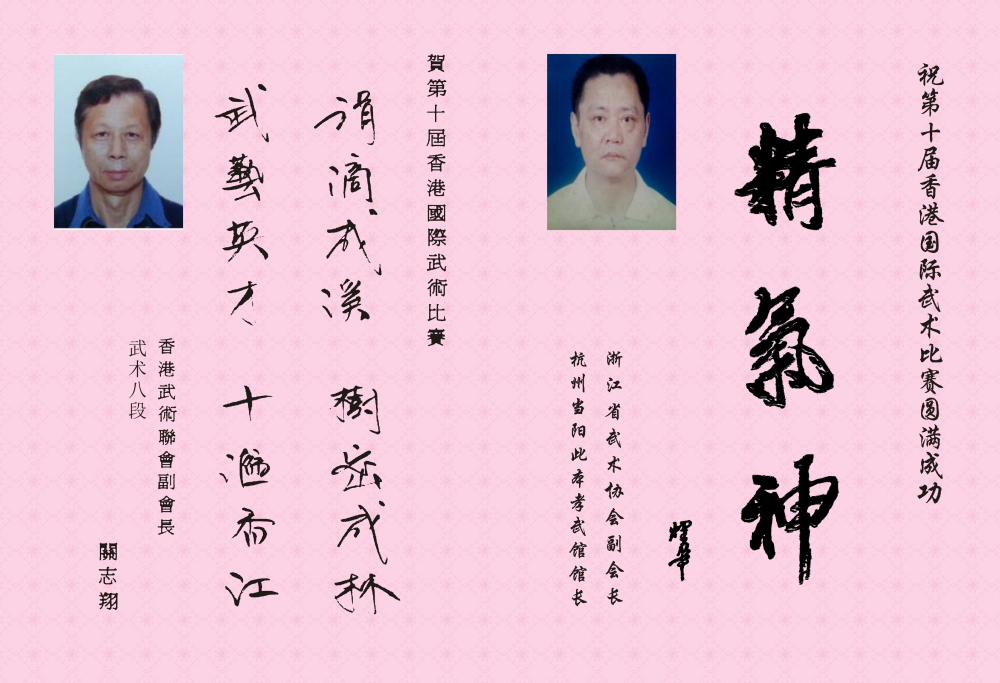 祝第十届香港国际武术比赛圆满成功
精氣神
耀華
浙江省武术协会副会长
杭州当阳此本孝武馆馆长
賀第十屆香港國際武術比賽
涓滴成溪 樹密成林
武藝英才 十 香江
香港武術聯會副會長
武术八段
關志翔